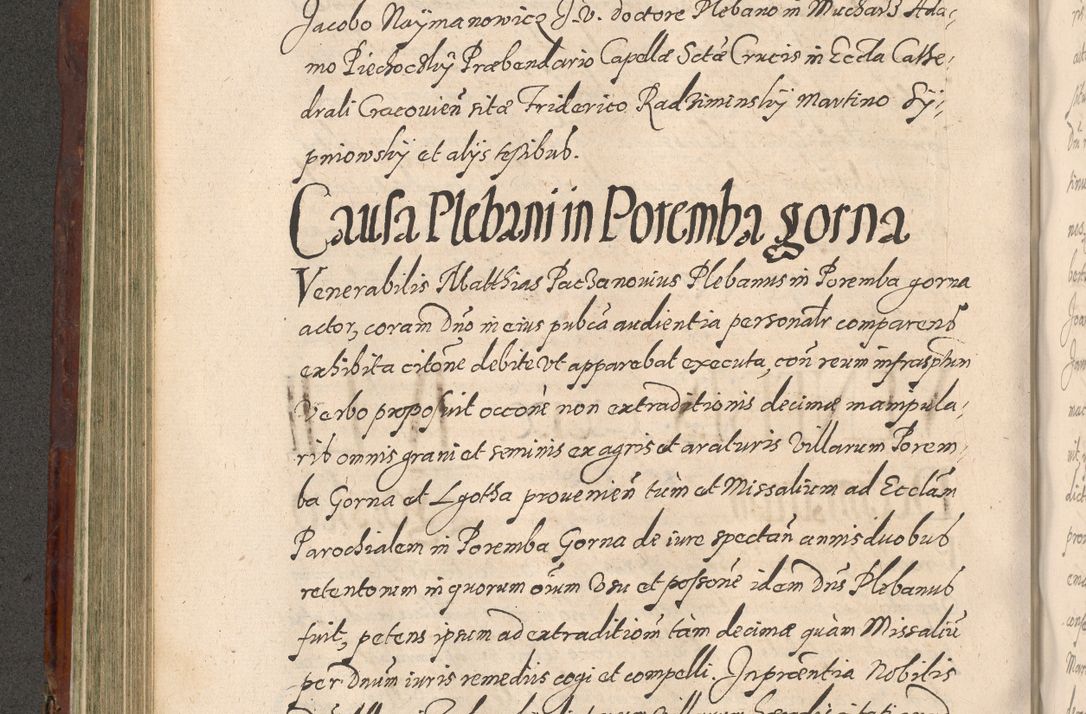 Jacobo Naÿmanowicz J. V. doctore Plebano in Mucharz Ada,
mo Piechoczkÿ Præbendario Capellæ Sctæ Crucis in Eccla Cathe,
drali Cracovień sitæ Friderico Radziminskÿ Martino Sÿ,
pniowskÿ et alijs testibus.
Causa Plebani in Poremba gorna
Venerabilis Matthias Paczanovius Plebanus in Poremba gorna
actor, coram Dńo in eius publca audientia personalr comparens
exhibita citone debite ut apparebat executa, con reum infrasptum
verbo proposuit occone non extraditionis decimæ manipula,
ris omnis grani et seminis ex agris et araturis Villarum Porem,
ba Gorna et Lgotha provenień tum et Missalium ad Ecclam
Parochialem in Poremba Gorna de iure spectań annis duobus
retentorum in quorum oium Vsu et possone idem Dńs Plebanus
fuit, petens ipsum ad extraditiom tam decimæ quàm Missaliu
per Dnum iuris remediis cogi et compelli. In præntia Nobilis